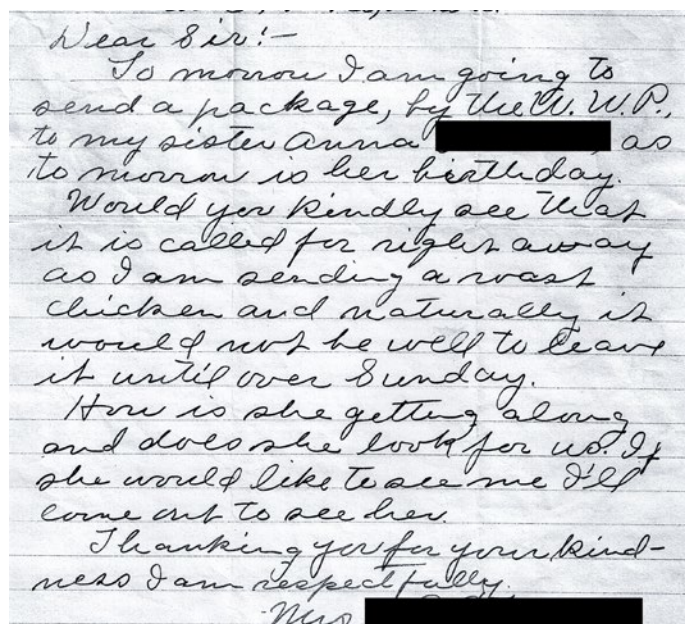 Dear Sir:-
To morrow I am going to
send a package, by the W. W. P.,
to my sister Anna as
to morrow is her birthday.
Would you kindly see that
it is called for right away
as I am sending a roast
chicken and naturally it
would not be well to leave
it until over Sunday.
How is she getting along
and does she look for us. If
she would like to see me I'll
come out to see her.
Thanking you for your kind-
ness I am respectfully.
Mrs